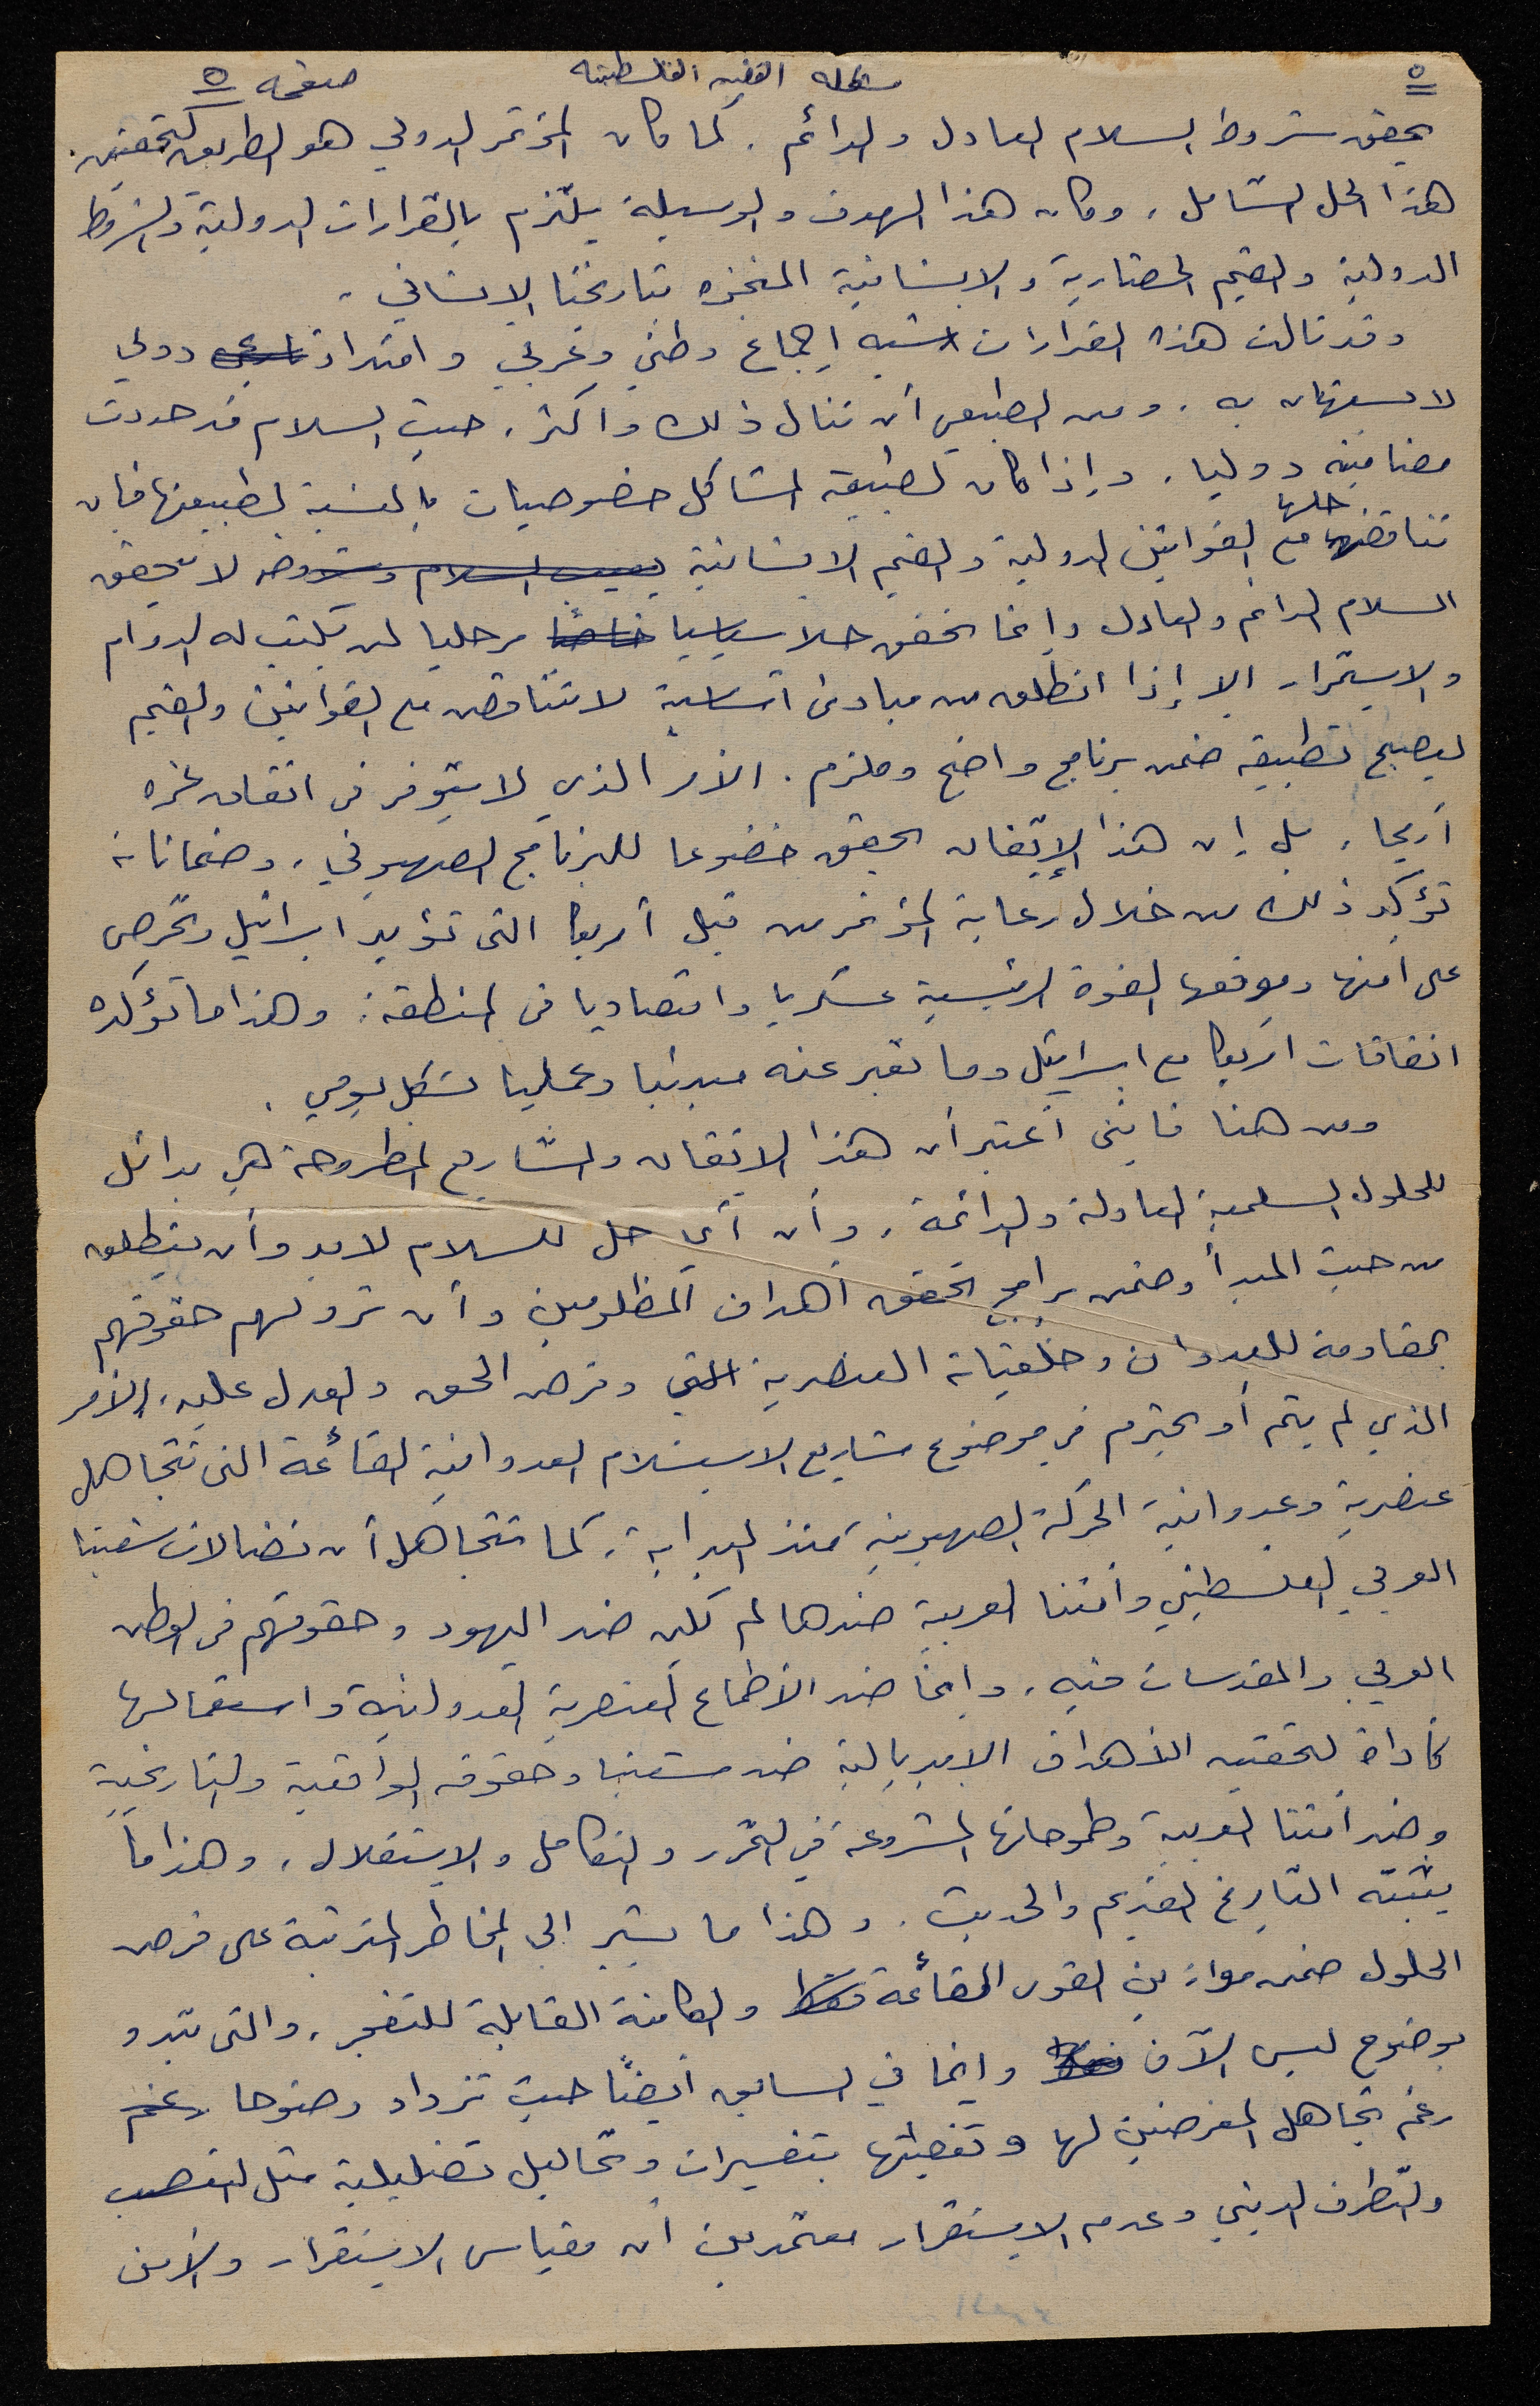 ٥ مسألة القضية الفلسطينية صفحة ٥
يحقق شروط السلام العادل والدائم. كما كان المؤتمر الدولي هو الطريق لتحقيق
هذا الحل الشامل، وكان هذا الهدف والوسيلة يلتزم بالقرارات الدولية والشروط
الدولية والقيم الحضارية والانسانية المنجزه بتاريخنا الإنساني.
وقد نالت هذه القرارات شبه إجماع وطني وعربي وامتداد دولي
لا يستهان به. ومن الطبيعي أن تنال ذلك واكثر، حيث السلام قد حددت
مضامينه دوليا. وإذا كان لطبيعة المشاكل خصوصيات بالنسبة لطبيعتها فإن
تناقض حلها مع القوانين الدولية والقيم الانسانية لا يحقق
السلام الدائم والعادل وإنما يحقق حلا سياسيا مرحليا لن يكتب له الدوام
والاستمرار إلا إذا انطلق من مبادئ أساسية لا تتناقض مع القوانين والقيم
ليصبح تطبيقه ضمن برنامج واضح وملزم. الأمر الذي لا يتوفر في اتفاق غزه
أريحا، بل إن هذا الإتفاق يحقق خضوعا للبرنامج الصهيوني، وضماناته
تؤكد ذلك من خلال رعاية المؤتمر من قبل أمريكا التي تؤيد اسرائيل وتحرص
على أمنها وموقعها القوة الرئيسية عسكريا واقتصاديا في المنطقة: وهذا ما تؤكده
اتفاقات امريكا مع اسرائيل وما تعبر عنه مبدئيا وعمليا بشكل يومي.
ومن هنا فإنني أعتبر أن هذا الاتفاق والمشاريع المطروحة هي بدائل
للحلول السلمية العادلة والدائمة، وأن أي حل للسلام لابد وأن ينطلق
من حيث المبدأ وضمن برامج تحقق أهداف المظلومين وأن ترد لهم حقوقهم
بمقاومة للعدوان وخلفياته العنصرية وفرض الحق والعدل عليه، الأمر
الذي لم يتم أو يحترم في موضوع مشاريع الاستسلام العدوانية القائمة التي تتجاهل
عنصرية وعدوانية الحركة الصهيونية منذ البداية، كما تتجاهل أن نضالات شعبنا
العربي الفلسطيني وأمتنا العربية ضدها لم تكن ضد اليهود وحقوقهم في الوطن
العربي والمقدسات فيه، وإنما ضد الأطماع العنصرية العدوانية واستعمالها
كأداة لتحقيق الأهداف الامبريالية ضد شعبنا وحقوقه الواقعية والتاريخية
وضد أمتنا العربية وطموحاتها المشروعة في التحرر والتكامل والاستقلال، وهذا ما
يثبته التاريخ القديم والحديث. وهذا ما يشير إلى المخاطر المترتبة على فرض
الحلول ضمن موازين القوى القائمة فقط والكامنة القابلة للتفجر، والتي تبدو
بوضوح ليس الآن فقط وإنما في السابق أيضًا حيث تزداد وضوحا رغم
رغم تجاهل المغرضين لها وتغطيتها بتفسيرات وتحاليل تضليلية مثل التعصب
والتطرف الديني وعدم الاستقرار معتمدين أن مقياس الاستقرار والأمن